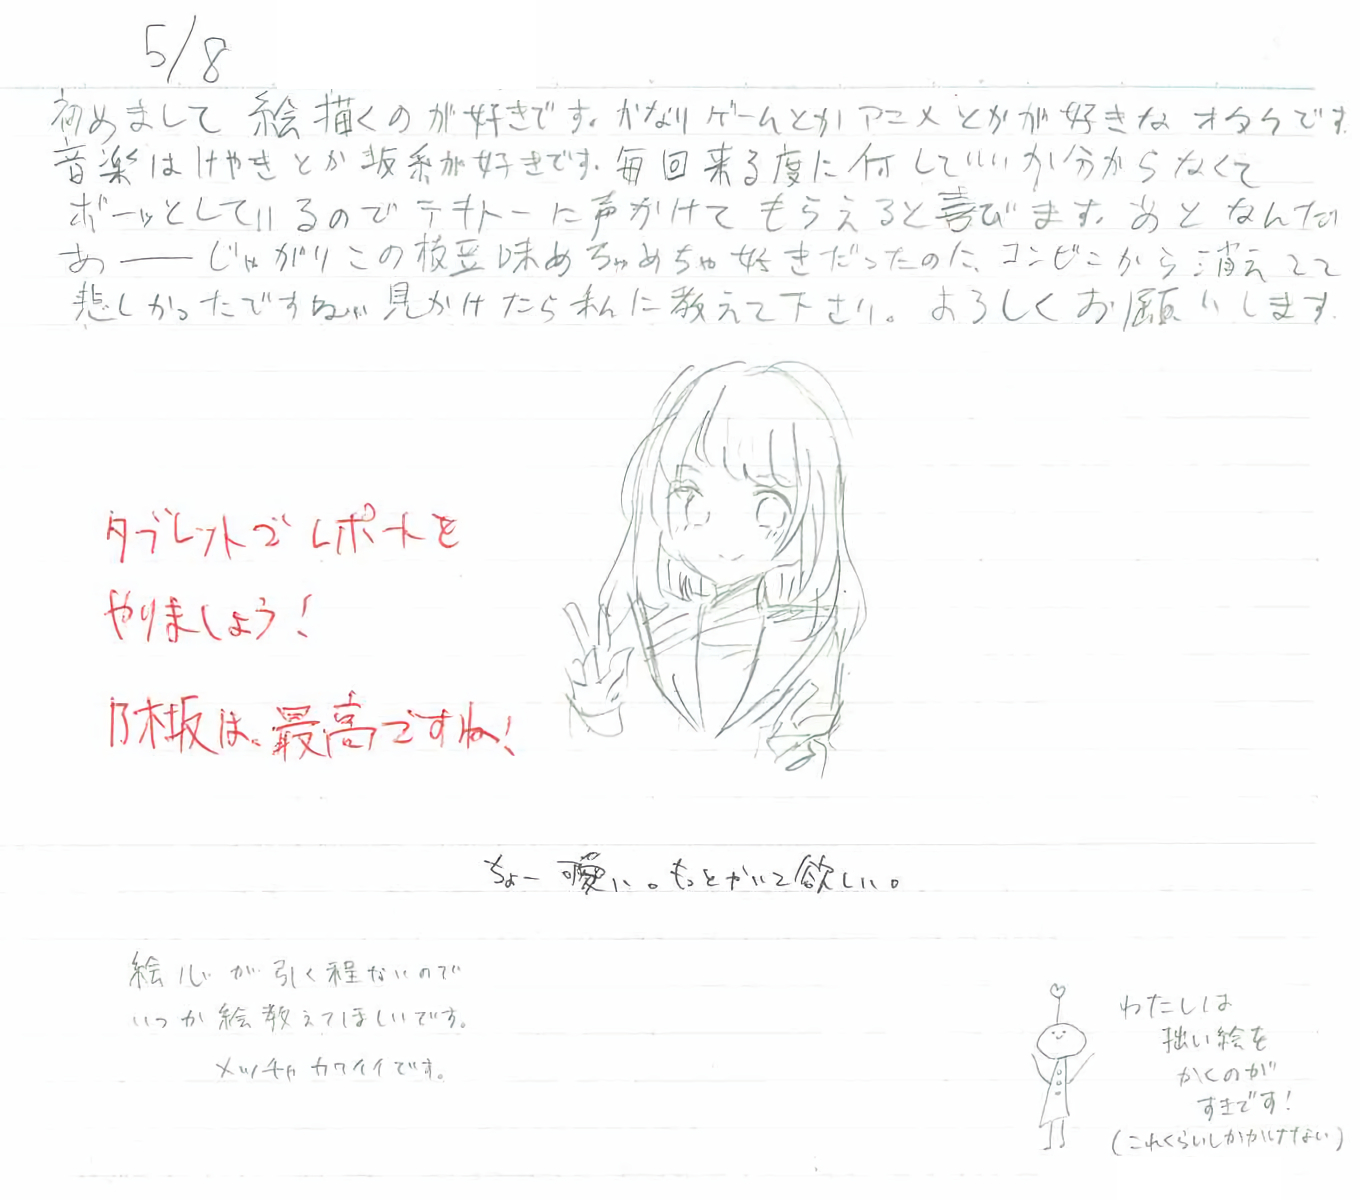 5/8
初めまして 絵描くのが好きです。かなりゲームとかアニメとかが好きなオタクです
音楽はけやきとか坂系が好きです。毎回来る度に何していいか分からなくて
ボーッとしているのでテキトーに声かけてもらえると喜びます。あとなんだ
あ――じゃがりこの枝豆味めちゃめちゃ好きだったのに、コンビニから消えてて
悲しかったですね… 見かけたら私に教えて下さい。よろしくお願いします。
タブレットでレポートを
やりましょう!
乃木坂は、最高ですね!
ちょー可愛い。もっとかいて欲しい。
絵心が引く程ないので
いつか絵教えてほしいです。
メッチャカワイイです。
わたしは
拙い絵を
かくのが
すきです!
(これくらいしかかけない)